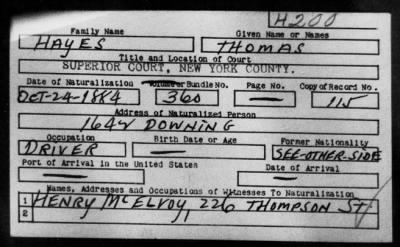 H200
Family Name Given Name or Names
HAYES THOMAS
Title and Location of Court
SUPERIOR COURT, NEW YORK COUNTY.
Date of Naturalization Volume or Bundle No. Page No. Copy of Record No.
OCT-24-1884 360 — 115
Address of Naturalized Person
164 W DOWNING
Occupation Birth Date or Age Former Nationality
DRIVER — SEE-OTHER-SIDE
Port of Arrival in the United States Date of Arrival
— —
Names, Addresses and Occupations of Witnesses To Naturalization
1 HENRY McELVOY 226 THOMPSON ST.
2 "